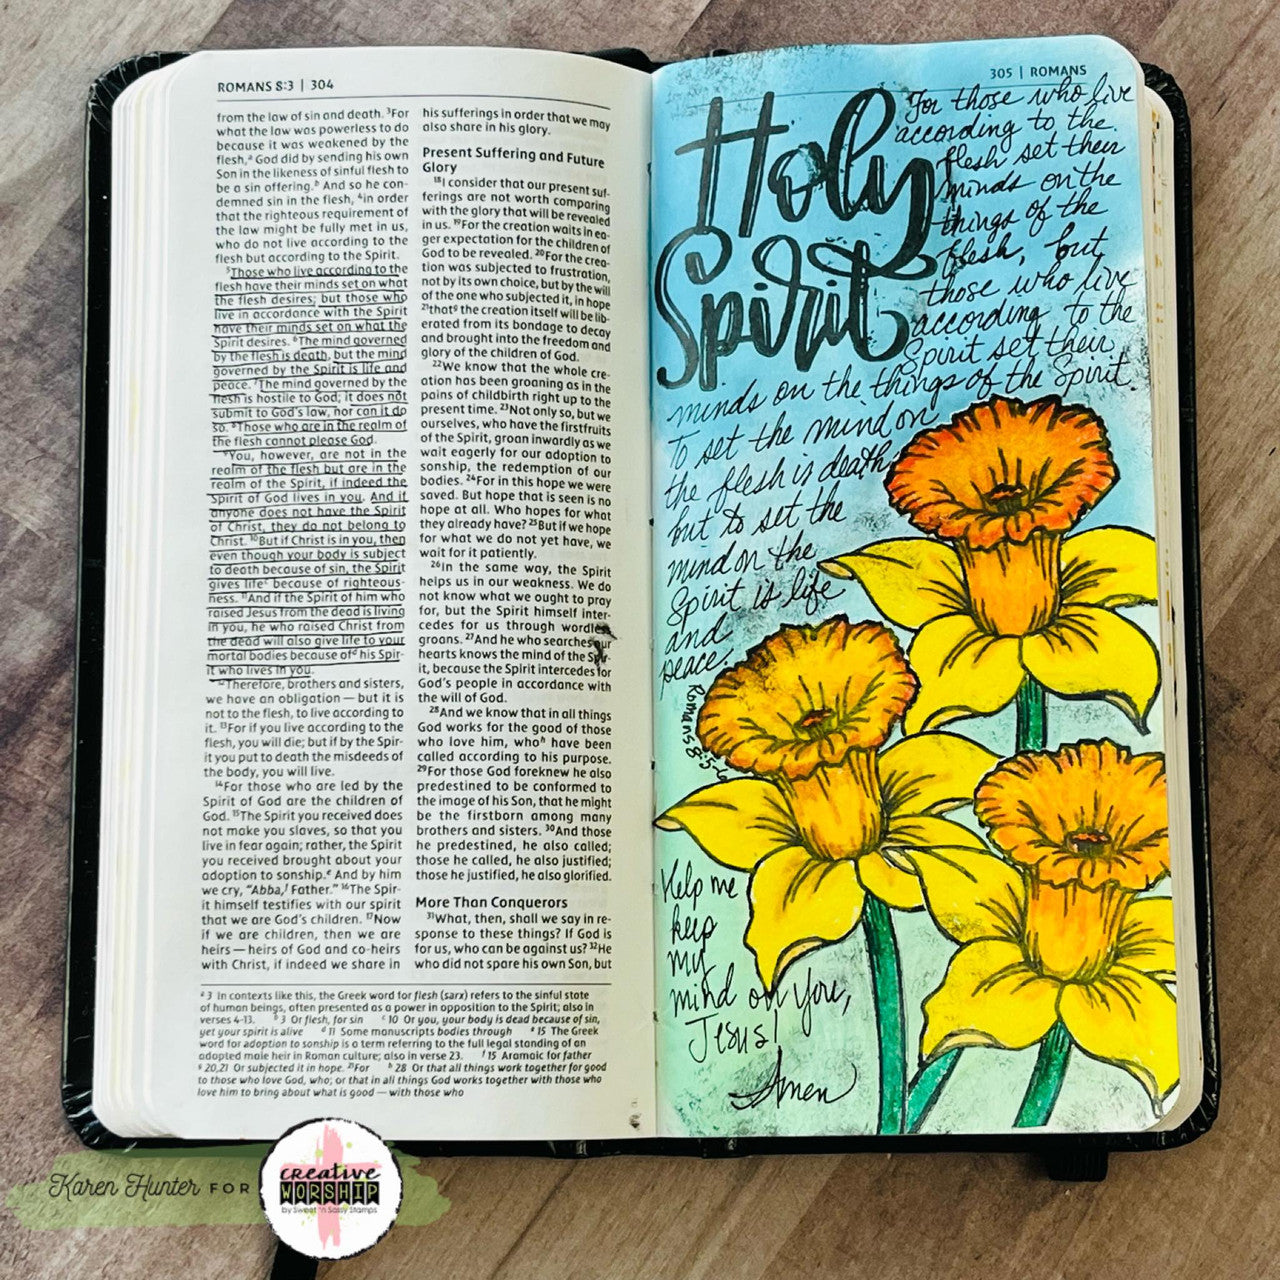 ROMANS 8:3 | 304
from the law of sin and death. ³For
what the law was powerless to do
because it was weakened by the
flesh,ᵃ God did by sending his own
Son in the likeness of sinful flesh to
be a sin offering.ᵇ And so he con-
demned sin in the flesh, ⁴in order
that the righteous requirement of
the law might be fully met in us,
who do not live according to the
flesh but according to the Spirit.
⁵Those who live according to the
flesh have their minds set on what
the flesh desires; but those who
live in accordance with the Spirit
have their minds set on what the
Spirit desires. ⁶The mind governed
by the flesh is death, but the mind
governed by the Spirit is life and
peace. ⁷The mind governed by the
flesh is hostile to God; it does not
submit to God's law, nor can it do
so. ⁸Those who are in the realm of
the flesh cannot please God.
⁹You, however, are not in the
realm of the flesh but are in the
realm of the Spirit, if indeed the
Spirit of God lives in you. And if
anyone does not have the Spirit
of Christ, they do not belong to
Christ. ¹⁰But if Christ is in you, then
even though your body is subject
to death because of sin, the Spirit
gives lifeᶜ because of righteous-
ness. ¹¹And if the Spirit of him who
raised Jesus from the dead is living
in you, he who raised Christ from
the dead will also give life to your
mortal bodies because ofᵈ his Spir-
it who lives in you.
¹²Therefore, brothers and sisters,
we have an obligation — but it is
not to the flesh, to live according to
it. ¹³For if you live according to the
flesh, you will die; but if by the Spir-
it you put to death the misdeeds of
the body, you will live.
¹⁴For those who are led by the
Spirit of God are the children of
God. ¹⁵The Spirit you received does
not make you slaves, so that you
live in fear again; rather, the Spirit
you received brought about your
adoption to sonship.ᵉ And by him
we cry, "Abba,ᶠ Father." ¹⁶The Spir-
it himself testifies with our spirit
that we are God's children. ¹⁷Now
if we are children, then we are
heirs — heirs of God and co-heirs
with Christ, if indeed we share in
his sufferings in order that we may
also share in his glory.
Present Suffering and Future
Glory
¹⁸I consider that our present suf-
ferings are not worth comparing
with the glory that will be revealed
in us. ¹⁹For the creation waits in ea-
ger expectation for the children of
God to be revealed. ²⁰For the crea-
tion was subjected to frustration,
not by its own choice, but by the will
of the one who subjected it, in hope
²¹thatᵍ the creation itself will be lib-
erated from its bondage to decay
and brought into the freedom and
glory of the children of God.
²²We know that the whole cre-
ation has been groaning as in the
pains of childbirth right up to the
present time. ²³Not only so, but we
ourselves, who have the firstfruits
of the Spirit, groan inwardly as we
wait eagerly for our adoption to
sonship, the redemption of our
bodies. ²⁴For in this hope we were
saved. But hope that is seen is no
hope at all. Who hopes for what
they already have? ²⁵But if we hope
for what we do not yet have, we
wait for it patiently.
²⁶In the same way, the Spirit
helps us in our weakness. We do
not know what we ought to pray
for, but the Spirit himself inter-
cedes for us through wordless
groans. ²⁷And he who searches our
hearts knows the mind of the Spir-
it, because the Spirit intercedes for
God's people in accordance with
the will of God.
²⁸And we know that in all things
God works for the good of those
who love him, whoʰ have been
called according to his purpose.
²⁹For those God foreknew he also
predestined to be conformed to
the image of his Son, that he might
be the firstborn among many
brothers and sisters. ³⁰And those
he predestined, he also called;
those he called, he also justified;
those he justified, he also glorified.
More Than Conquerors
³¹What, then, shall we say in re-
sponse to these things? If God is
for us, who can be against us? ³²He
who did not spare his own Son, but
ᵃ 3 In contexts like this, the Greek word for flesh (sarx) refers to the sinful state
of human beings, often presented as a power in opposition to the Spirit; also in
verses 4-13. ᵇ 3 Or flesh, for sin ᶜ 10 Or you, your body is dead because of sin,
yet your spirit is alive ᵈ 11 Some manuscripts bodies through ᵉ 15 The Greek
word for adoption to sonship is a term referring to the full legal standing of an
adopted male heir in Roman culture; also in verse 23. ᶠ 15 Aramaic for father
ᵍ 20,21 Or subjected it in hope. ²¹For ʰ 28 Or that all things work together for good
to those who love God, who; or that in all things God works together with those who
love him to bring about what is good — with those who
305 | ROMANS
Holy
Spirit
For those who live
according to the
flesh set their
minds on the
things of the
flesh, but
those who live
according to the
Spirit set their
minds on the things of the Spirit.
To set the mind on
the flesh is death
but to set the
mind on the
Spirit is life
and
peace.
Romans 8:5-6
Help me
keep
my
mind on You,
Jesus!
Amen
Karen Hunter FOR
creative
WORSHIP
by Sweet 'n Sassy Stamps